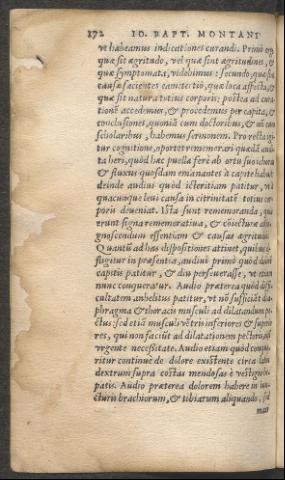 192 IO. BAPT. MONTANI
vt habeamus indicationes curandi. Primò
quæ sit ægritudo, vel quæ sint ægritudines, &
quæ symptomata, videbimus: secundo, quæ
causæ facientes eam: tertiò, quæ loca affecta, &
quæ sit natura totius corporis: postea ad
accedemus, & procedemus per capita, &
conclusiones, quoniã cum doctoribus, & nõ cum
scholaribus, habemus sermonem. Pro recta
tur cognitione, oportet rememorari quædã
ta heri, quòd hæc puella ferè ab ortu
& fluxus quosdam emanantes à capite habuit
deinde audiui quòd icteritiam patitur,
quacunque leui causa in citrinitatẽ totius
poris deueniat. Ista sunt rememoranda,
erunt signa rememoratiua, & coniecturæ
gnoscendum essentiam & causas ægritudi
Quantũ ad has dispositiones attinet,
fligitur in præsentia, audiui primò quòd
capitis patitur, & diu perseuerasse, vt etiam
nunc conqueratur. Audio præterea quòd
cultatem anhelitus patitur, vt nõ sufficiãt
phragma & thoracis musculi ad dilatandum
ctus: sed etiã musculi vẽtris inferiores &
res, qui non faciũt ad dilatationem pectoris,
vrgente necessitate. Audio etiam quòd
ritur continuè de dolore existente circa
dextrum supra costas mendosas è
patis. Audio præterea dolorem habere in
cturis brachiorum, & tibiarum aliquando, sed